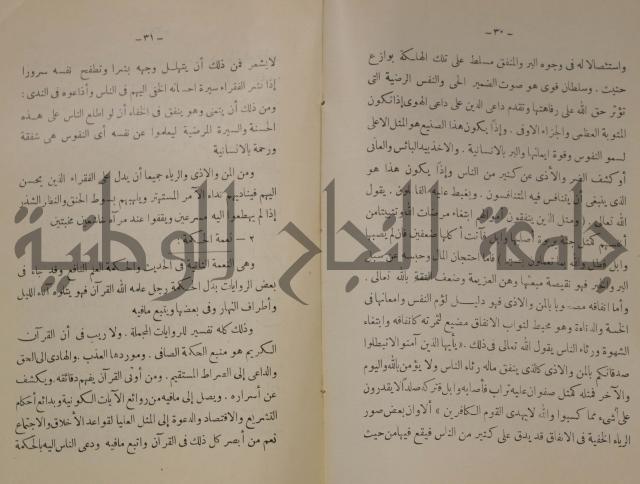 - ٣٠ -
واستئصالا له فى وجوه البر والمنفق مسلط على تلك الهلكة بوازع
حثيث. وسلطان قوى هو صوت الضمير الحى والنفس الرضية التى
تؤثر حق الله على رفاهتها وتقدم داعى الدين على داعى الهوى إذا تكون
المثوبة العظمى والجزاء الاوفى. وإذا يكون هذا الصنيع هو المثل الاعلى
لسمو النفوس وقوة ايمانها والبر بالانسانية. والاخذ بيد البائس والعانى
أو كشف الضر والأذى عن كثير من الناس وإذا يكون هذا هو
الذى ينبغى أن يتنافس فيه المتنافسون. ويغبط عليه الفاعلون. يقول
الله تعالى (ومثل الذين ينفقون أموالهم ابتغاء مرضات الله وتثبيتا من
أنفسهم كمثل جنة بربوة أصابها وابل فآتت أكلها ضعفين فإن لم يصبها
وابل فطل والله بما تعملون بصير) أما احتجان المال وحبسه عن سبيل
البر والخير فهو نقيصة مبعثها وهن العزيمة وضعف الثقة بالله تعالى.
وأما انفاقه مصحوبا بالمن والاذى فهو دليل لؤم النفس وامعانها فى
الخسة والدناءة وهو محبط لثواب الانفاق مضيع لثمرته كانفاقه وابتغاء
الشهوة ورثاء الناس يقول الله تعالى فى ذلك. «يأيها الذين آمنوا لا تبطلوا
صدقاتكم بالمن والاذى كالذى ينفق ماله رئاء الناس ولا يؤمن بالله واليوم
والآخر فمثله كمثل صفوان عليه تراب فأصابه وابل فتركه صلدا لا يقدرون
على شىء مما كسبوا والله لا يهدى القوم الكافرين» ألا وان بعض صور
الرياء الخفية فى الانفاق قد يدق على كثير من الناس فيقع فيها من حيث
- ٣١ -
لا يشعر فمن ذلك أن يتهلل وجهه بشرا وتطفح نفسه سرورا
إذا نشر الفقراء سيرة احسانه الخفى اليهم فى الناس وأذاعوه فى الندى:
ومن ذلك أن يتمنى وهو ينفق فى الخفاء أن لو اطلع الناس على هذه
الحسنة والسيرة المرضية ليعلموا عن نفسه أى النفوس هى شفقة
ورحمة بالانسانية
ومن المن والاذى والرياء جميعا أن يدل على الفقراء الذين يحسن
اليهم فيناديهم نداء الآمر المستهتر ويلهبهم بسوط الحنق والنظر الشذر
إذا لم يهطعوا اليه مسرعين ويقفوا عند مرآه خاشعين مخبتين
٢ - نعمة الحكمة:
وهى النعمة الثانية فى الحديث والحكمة العلم النافع وقد جاء فى
بعض الروايات بدل الحكمة ورجل علمه الله القرآن فهو يتلوه آناء الليل
وأطراف النهار وفى بعضها ويتبع مافيه
وذلك كله تفسير للروايات المجملة. ولا ريب فى أن القرآن
الكريم هو منبع الحكمة الصافى. وموردها العذب. والهادى الى الحق
والداعى إلى الصراط المستقيم. ومن أوتى القرآن يفهم دقائقه. ويكشف
عن أسراره. ويصل إلى مافيه من روائع الآيات الكونية وبدائع أحكام
التشريع والاقتصاد والدعوة إلى المثل العليا لقواعد الأخلاق والاجتماع
نعم من أبصر كل ذلك فى القرآن واتبع مافيه ودعى الناس اليه بالحكمة
جامعة النجاح الوطنية